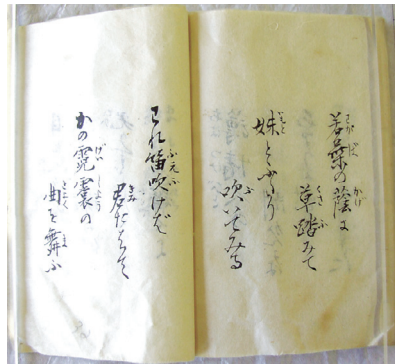 若葉の蔭に
草踏みて
妹とふたり
吹いてみる
われ笛吹けば
君たちて
かの霓裳の
曲を舞ふ